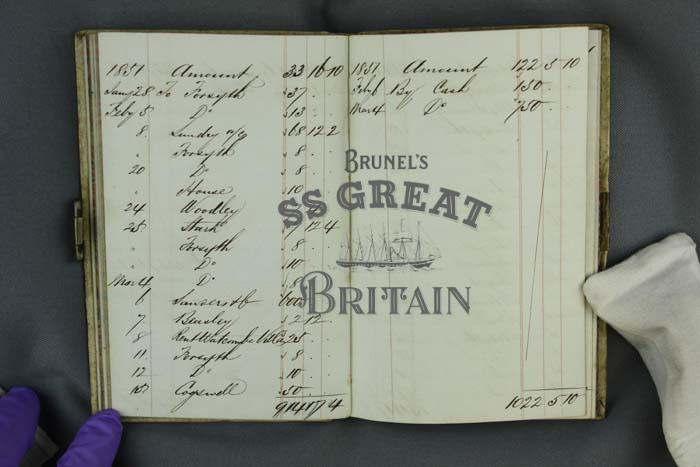 1851 Amount 33 16 10
Jany 28 To Forsyth 37 . .
Feby 5 Do 13 . .
8 Sundry a/c 68 12 2
" Forsyth 8 . .
20 Do 8 . .
" House 10 . .
24 Woodley
25 Stark 12 4
" Forsyth 8 . .
" Do 10 . .
Mar 4 Do 8
6 Sanders & Co 600
7 Beasley 2 12 .
8 Rent Watcombe Villa 25 . .
11 Forsyth 8 . .
12 Do 10 . .
15 Cogswell 50 . .
914 17 4
1851 Amount 122 5 10
Feb 6 By Cash 150 . .
Mar 4 Do 750 . .
1022 5 10
BRUNEL'S
SS GREAT
BRITAIN